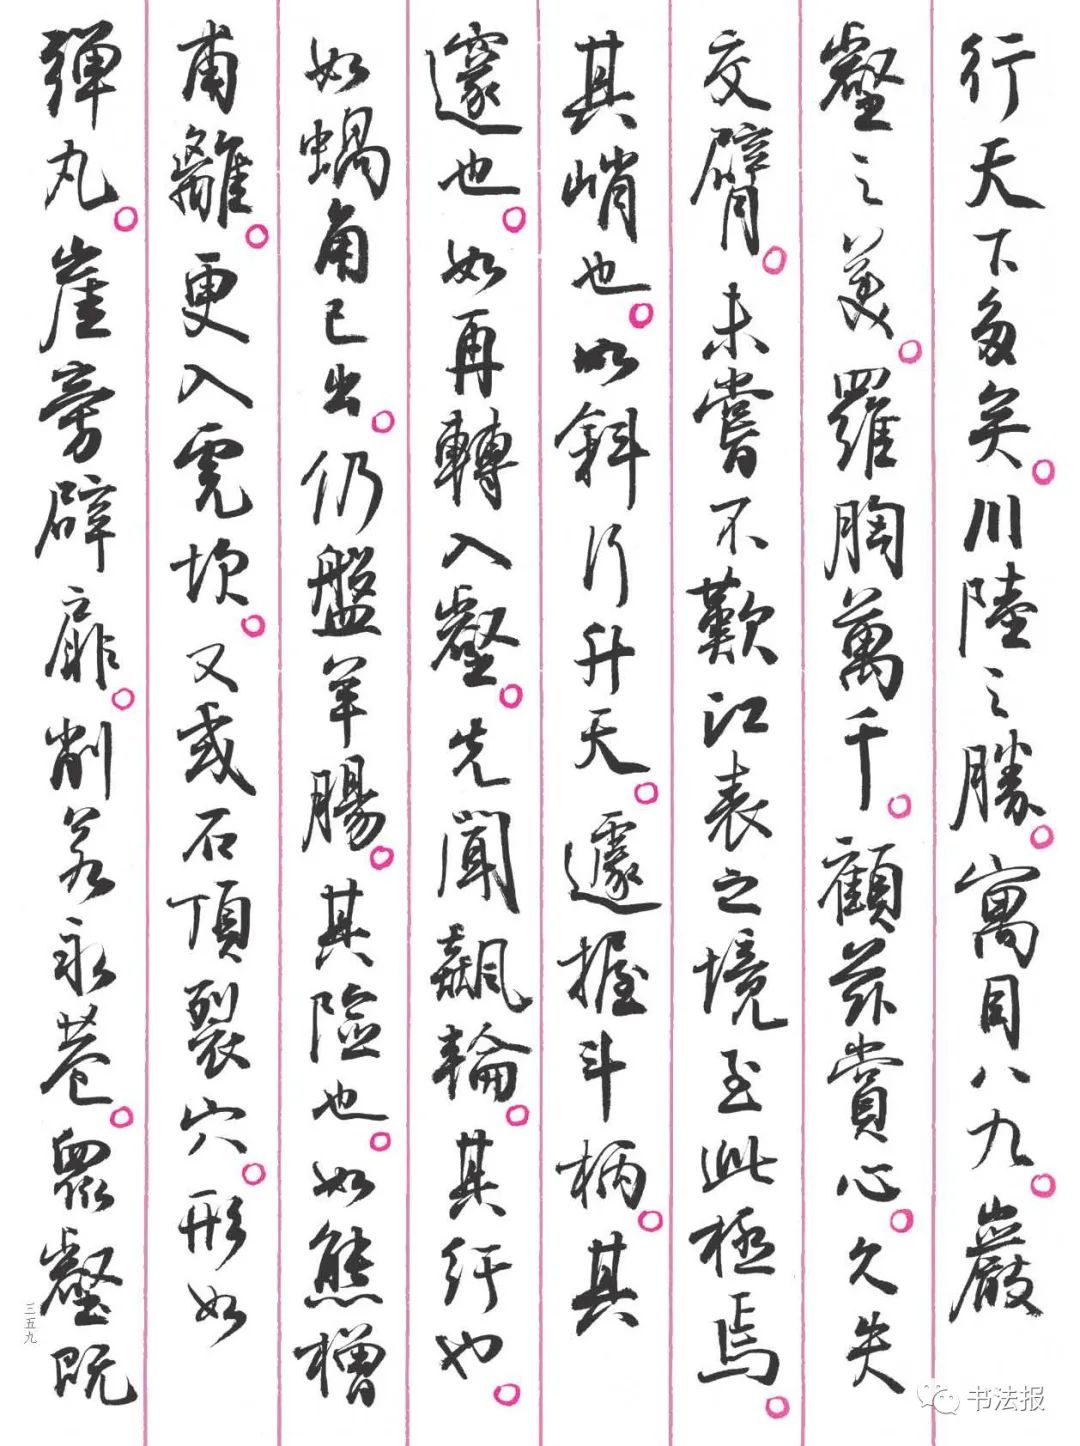 行天下多矣。川陸之勝。寓目八九。巖
壑之美。羅胸萬千。顧茲賞心。久失
交臂。未嘗不歎江表之境至此極焉
。其峭也。如斜行升天。遽握斗柄。其
邃也。如再轉入壑。先聞飆輪。其紆也。
如蝸角已出。仍盤羊腸。其險也。如熊橧
甫離。更入虎坎。又或石頂裂穴。形如
彈丸。崖旁辟扉。削若永巷。眾壑既
三五九
书法报